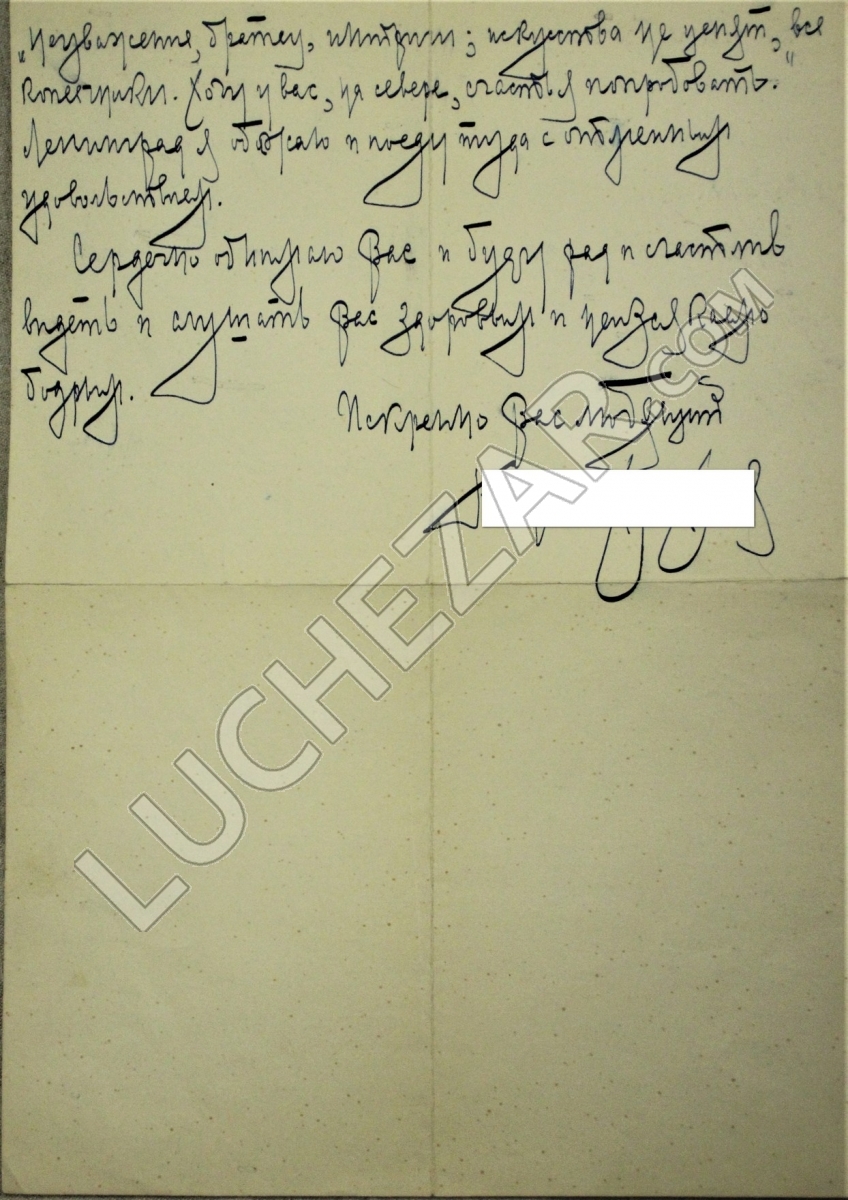 „Неуважение, братец, интриги; искусства не ценят, все
копеечники. Хочу у вас, на севере, счастья попробовать.“
Ленинград я обожаю и поеду туда с отменным
удовольствием.
Сердечно обнимаю Вас и буду рад и счастлив
видеть и слушать Вас здоровым и неизменно
бодрым.
Искренно Вас любящий
LUCHEZAR.COM